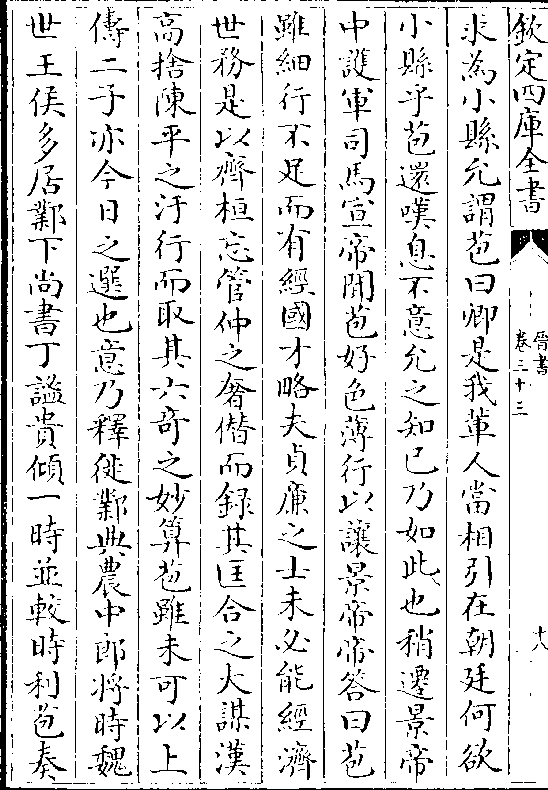 欽定四庫全書
晉書
卷三十三
十八
求為小縣允謂苞曰卿是我軰人當相引在朝廷何欲
小縣乎苞還嘆息不意允之知已乃如此也稍遷景帝
中護軍司馬宣帝聞苞好色薄行以讓景帝帝答曰苞
雖細行不足而有經國才略夫貞廉之士未必能經濟
世務是以齊桓忘管仲之奢僣而録其匡合之大謀漢
高捨陳平之汙行而取其六奇之妙算苞雖未可以上
儔二子亦今日之選也意乃釋徙鄴典農中郎將時魏
世王侯多居鄴下尚書丁謐貴傾一時並較時利苞奏